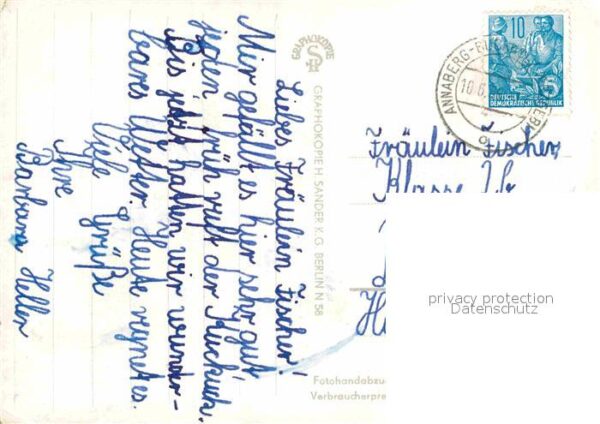 Liebes Fräulein Fischer!
Mir gefällt es hier sehr gut
jeden früh ruft der Kuckuck.
Bis jetzt hatten wir wunder-
bares Wetter. Heute regnet es.
Viele Grüße
Ihre
Barbara Heller
GRAPHOKOPIE
GRAPHOKOPIE H. SANDER K. G. BERLIN N 58
10
5
DEUTSCHE
DEMOKRATISCHE REPUBLIK
ANNABERG-BUCHHOLZ
10.6.
Fräulein Fischer
Klasse
privacy protection
Datenschutz
Fotohandabzu
Verbraucherpre